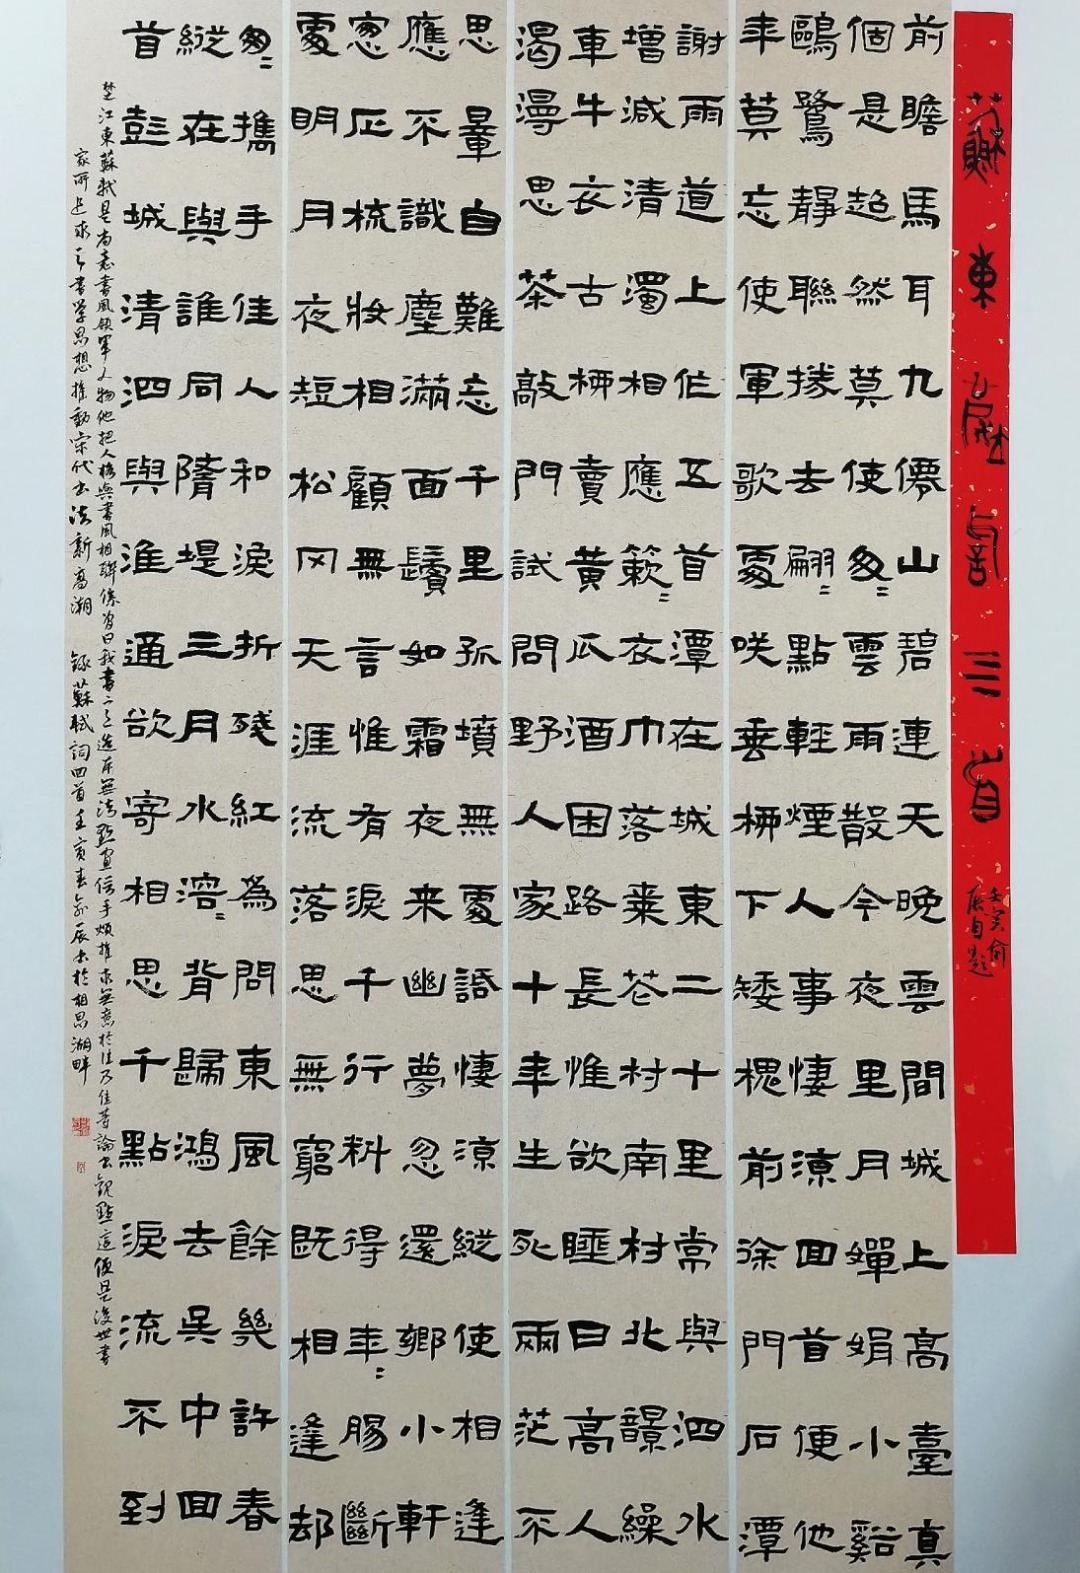 蘇東坡詞三首
壬寅俞
辰自題
前瞻馬耳九僊山碧連天晚雲間城上高臺真
個是超然莫使匆匆雲雨散今夜里月嬋娟小谿
鷗鷺靜聯拳去翩翩點輕煙人事悽涼回首便他
年莫忘使軍歌處咲垂柳下矮槐前徐門石潭
謝雨道上作五首潭在城東二十里常與泗水
增減清濁相應簌簌衣巾落棗花村南村北響繰
車牛衣古柳賣黃瓜酒困路長惟欲睡日高人
渴漫思茶敲門試問野人家十年生死兩茫不
思量自難忘千里孤墳無處話悽涼縱使相逢
應不識塵滿面鬢如霜夜来幽夢忽還鄉小軒
窗正梳妝相顧無言惟有淚千行料得年年腸斷
處明月夜短松冈天涯流落思無窮既相逢却
匆匆攜手佳人和淚折殘紅為問東風餘幾許春
縱在與誰同隋堤三月水溶溶背歸鴻去吳中回
首彭城清泗與淮通欲寄相思千點淚流不到
楚江東蘇軾是尚意書風領軍人物他把人格與書風相聯係曾曰我書意造本無法點畫信手煩推求無意於佳乃佳等論書觀點這便是後世書
家所追求之書學思想推動宋代書法新高潮 錄蘇軾詞四首壬寅春俞辰書於相思湖畔